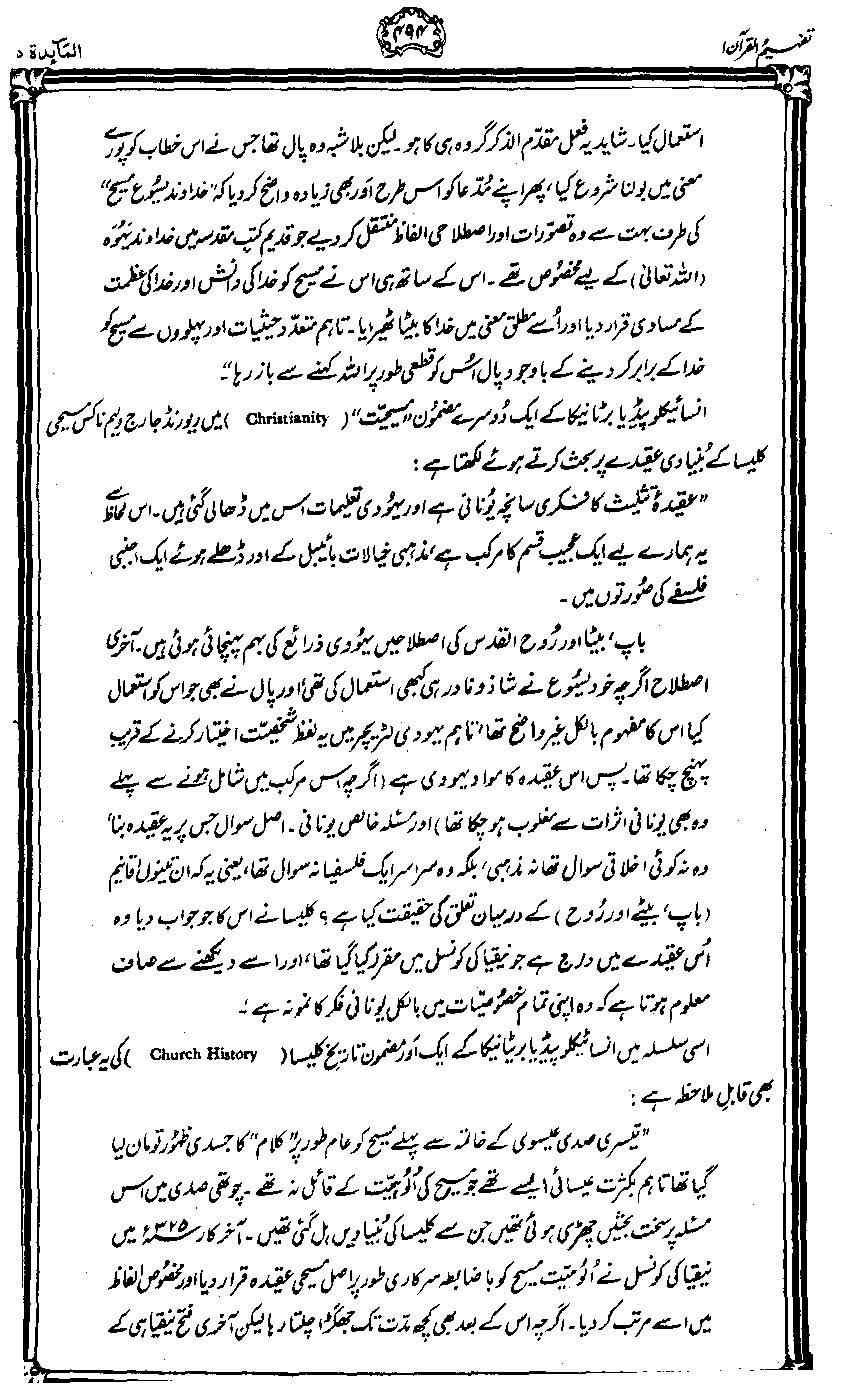 تفہیم القرآن ۱
۴۹۴
المائدۃ ۵
استعمال کیا۔ شاید یہ فعل مقدّم الذکر گروہ ہی کا ہو۔ لیکن بلاشبہ وہ پال تھا جس نے اس خطاب کو پورے
معنی میں بولنا شروع کیا، پھر اپنے مُدّعا کو اس طرح اَور بھی زیادہ واضح کر دیا کہ ”خداوند یسُوع مسیح“
کی طرف بہت سے وہ تصوّرات اور اصطلاحی الفاظ منتقل کر دیے جو قدیم کتب مقدسہ میں خداوند یَہُوَہ
(اللہ تعالیٰ) کے لیے مخصُوص تھے۔ اس کے ساتھ ہی اس نے مسیح کو خدا کی دانش اور خدا کی عظمت
کے مساوی قرار دیا اور اُسے مطلق معنی میں خدا کا بیٹا ٹھیرایا۔ تاہم متعدّد حیثیات اور پہلووں سے مسیح کو
خدا کے برابر کر دینے کے باوجود پال اُس کو قطعی طور پر اللہ کہنے سے باز رہا“۔
انسائیکلوپیڈیا برٹانیکا کے ایک دُوسرے مضمُون ”مسیحیّت“ (Christianity) میں ریورنڈ جارج ولیم ناکس مسیحی
کلیسا کے بُنیادی عقیدے پر بحث کرتے ہوئے لکھتا ہے :
”عقیدۂ تثلیث کا فکری سانچہ یُونانی ہے اور یہُودی تعلیمات اس میں ڈھالی گئی ہیں۔ اس لحاظ سے
یہ ہمارے لیے ایک عجیب قسم کا مرکب ہے، مذہبی خیالات بائیبل کے اور ڈھلے ہوئے ایک اجنبی
فلسفے کی صُورتوں میں۔
باپ، بیٹا اور رُوح القدس کی اصطلاحیں یہُودی ذرائع کی بہم پہنچائی ہوئی ہیں۔ آخری
اصطلاح اگرچہ خود یسُوع نے شاذونادر ہی کبھی استعمال کی تھی، اور پال نے بھی جو اس کو استعمال
کیا اس کا مفہوم بالکل غیر واضح تھا، تاہم یہودی لٹریچر میں یہ لفظ شخصیّت اختیار کرنے کے قریب
پہنچ چکا تھا۔ پس اس عقیدہ کا مواد یہودی ہے (اگرچہ اس مرکب میں شامل ہونے سے پہلے
وہ بھی یونانی اثرات سے مغلوب ہو چکا تھا) اور مسئلہ خالص یونانی۔ اصل سوال جس پر یہ عقیدہ بنا،
وہ نہ کوئی اخلاقی سوال تھا نہ مذہبی، بلکہ وہ سراسر ایک فلسفیانہ سوال تھا، یعنی یہ کہ ان تینوں اقانیم
(باپ، بیٹے اور رُوح) کے درمیان تعلق کی حقیقت کیا ہے؟ کلیسا نے اس کا جو جواب دیا وہ
اُس عقیدے میں درج ہے جو نیقیا کی کونسل میں مقرر کیا گیا تھا، اور اسے دیکھنے سے صاف
معلوم ہوتا ہے کہ وہ اپنی تمام خصُوصیّات میں بالکل یُونانی فکر کا نمونہ ہے“۔
اسی سلسلہ میں انسائیکلوپیڈیا برٹانیکا کے ایک اَور مضمون تاریخ کلیسا (Church History) کی یہ عبارت
بھی قابلِ ملاحظہ ہے :
”تیسری صدی عیسوی کے خاتمہ سے پہلے مسیح کو عام طور پر ”کلام“ کا جسدی ظہُور تو مان لیا
گیا تھا تاہم بکثرت عیسائی ایسے تھے جو مسیح کی اُلُوہیّت کے قائل نہ تھے۔ چوتھی صدی میں اس
مسئلہ پر سخت بحثیں چھڑی ہوئی تھیں جن سے کلیسا کی بُنیادیں ہل گئی تھیں۔ آخرکار ۳۲۵ء میں
نیقیا کی کونسل نے اُلوہیّت مسیح کو باضابطہ سرکاری طور پر اصل مسیحی عقیدہ قرار دیا اور مخصُوص الفاظ
میں اسے مرتب کر دیا۔ اگرچہ اس کے بعد بھی کچھ مدّت تک جھگڑا چلتا رہا لیکن آخری فتح نیقیا ہی کے